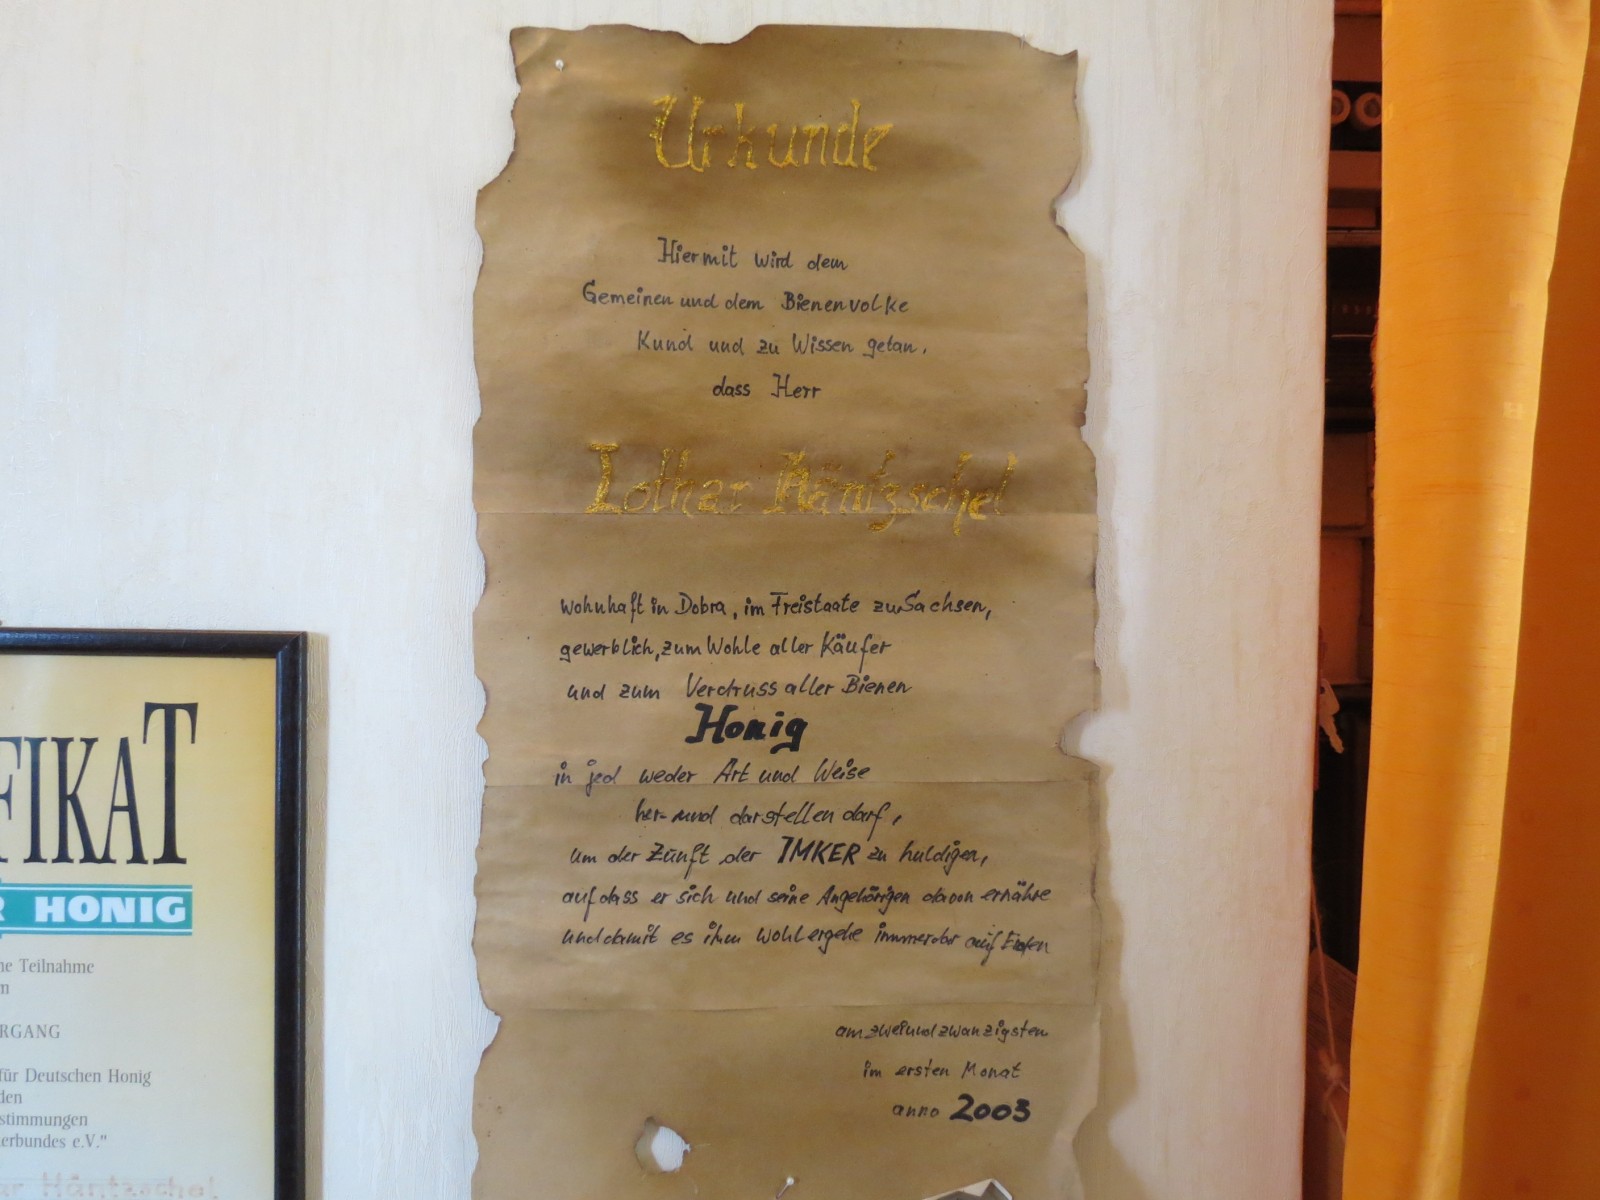 Urkunde
Hiermit wird dem
Gemeinen und dem Bienenvolke
Kund und zu Wissen getan,
dass Herr
Lothar Häntzschel
wohnhaft in Dobra, im Freistaate zu Sachsen,
gewerblich, zum Wohle aller Käufer
und zum Verdruss aller Bienen
Honig
in jed weder Art und Weise
her- und darstellen darf,
um der Zunft der IMKER zu huldigen,
auf dass er sich und seine Angehörigen davon ernähre
und damit es ihm wohl ergehe immerdar auf Erden
am zweiundzwanzigsten
im ersten Monat
anno 2003
FIKAT
R HONIG
ne Teilnahme
m
RGANG
für Deutschen Honig
den
stimmungen
erbundes e.V."
ar Häntzschel